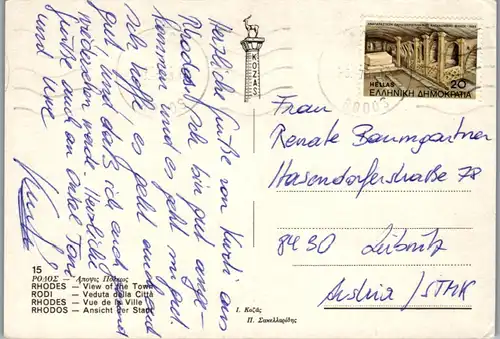 Herzliche Grüße von Kurti aus
Rhodos, ich bin gut ange-
kommen und es geht mir gut.
Ich hoffe, es geht auch
gut, und daß ich euch
wiedersehen werde. Herzliche
Grüße auch an Onkel Toni
und Uwe
KOZAS
HELLAS
20
ΕΛΛΗΝΙΚΗ ΔΗΜΟΚΡΑΤΙΑ
Frau
Renate Baumgartner
Hasendorferstraße 78
8430 Leibnitz
Austria / STMK
15
ΡΟΔΟΣ — Άποψις Πόλεως
RHODES — View of the Town
RODI — Veduta della Città
RHODES — Vue de la Ville
RHODOS — Ansicht der Stadt
Ι. Κοζάς
Π. Σακελλαρίδης